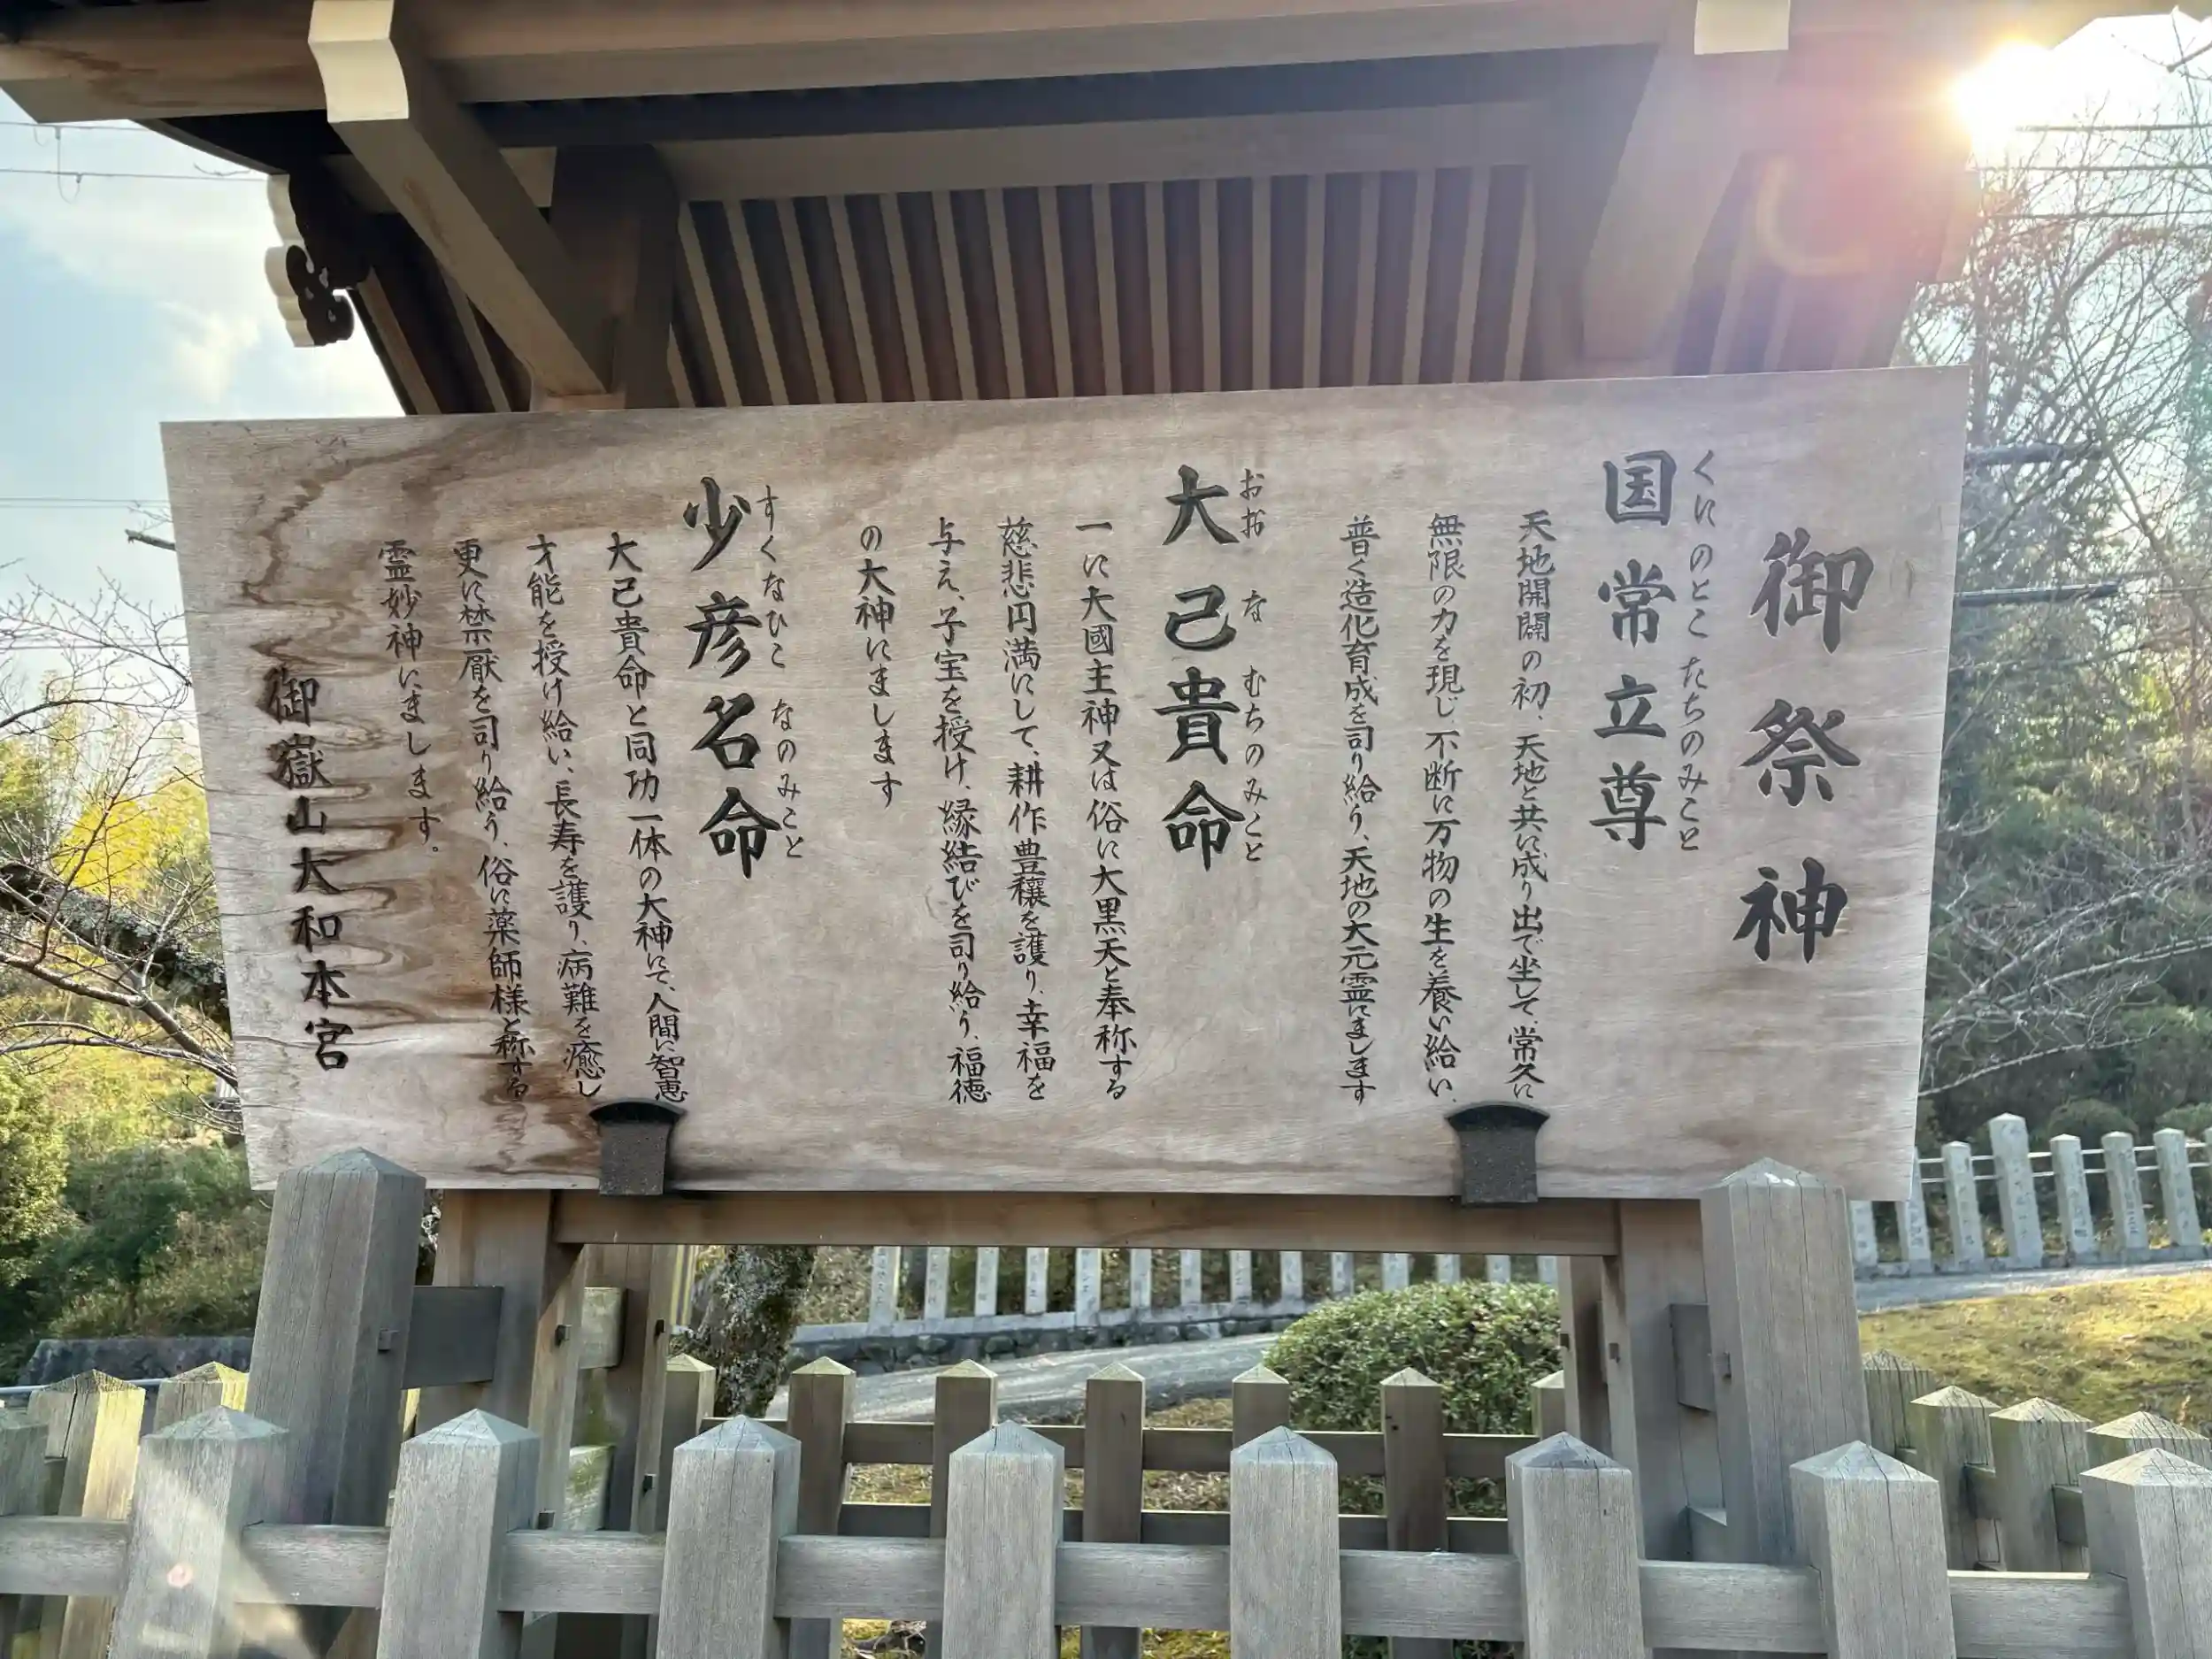 御祭神
くにのとこたちのみこと
国常立尊
天地開闢の初、天地と共に成り出で坐して、常久に
無限の力を現じ、不断に万物の生を養い給い、
普く造化育成を司り給う、天地の大元霊にまします
おおなむちのみこと
大己貴命
一に大國主神又は俗に大黒天と奉称する
慈悲円満にして、耕作豊穰を護り、幸福を
与え、子宝を授け、縁結びを司り給う、福徳
の大神にまします
すくなひこなのみこと
少彦名命
大己貴命と同功一体の大神にて、人間に智恵
才能を授け給い、長寿を護り、病難を癒し
更に禁厭を司り給う、俗に薬師様と称する
霊妙神にまします。
御嶽山大和本宮